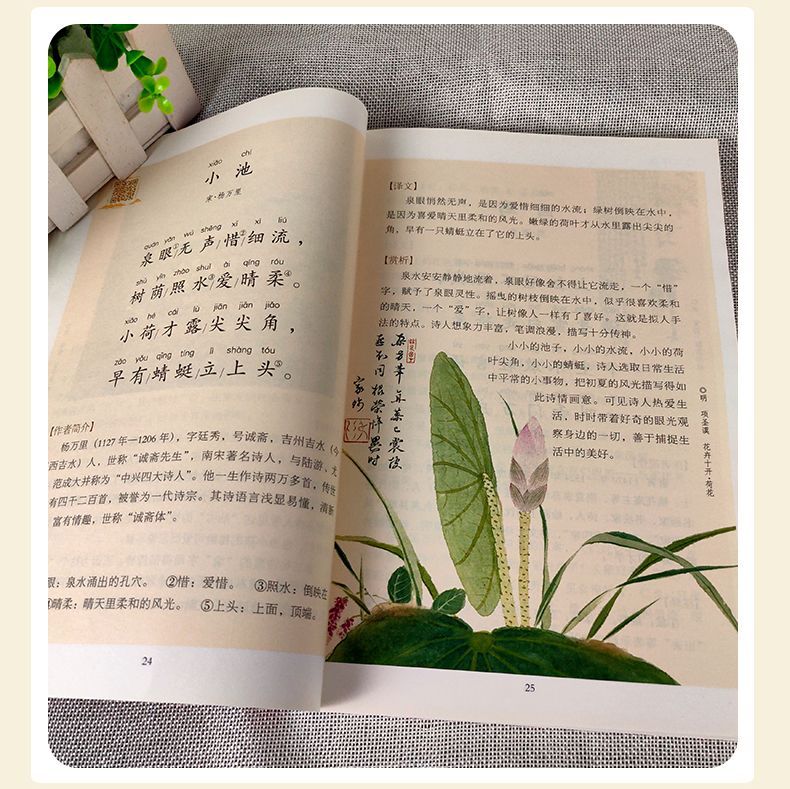 xiǎo chí
小 池
宋·杨万里
quán yǎn wú shēng xī xì liú
泉眼①无声惜②细流，
shù yīn zhào shuǐ ài qíng róu
树荫照水③爱晴柔④。
xiǎo hé cái lù jiān jiān jiǎo
小荷才露尖尖角，
zǎo yǒu qīng tíng lì shàng tóu
早有蜻蜓立上头⑤。
【作者简介】
杨万里（1127年—1206年），字廷秀，号诚斋，吉州吉水（今
西吉水）人，世称“诚斋先生”，南宋著名诗人，与陆游、尤
范成大并称为“中兴四大诗人”。他一生作诗两万多首，传世
有四千二百首，被誉为一代诗宗。其诗语言浅显易懂，清新
富有情趣，世称“诚斋体”。
眼：泉水涌出的孔穴。 ②惜：爱惜。 ③照水：倒映在
④晴柔：晴天里柔和的风光。 ⑤上头：上面，顶端。
24
【译文】
泉眼悄然无声，是因为爱惜细细的水流；绿树倒映在水中，
是因为喜爱晴天里柔和的风光。嫩绿的荷叶才从水里露出尖尖的
角，早有一只蜻蜓立在了它的上头。
【赏析】
泉水安安静静地流着，泉眼好像舍不得让它流走，一个“惜”
字，赋予了泉眼灵性。摇曳的树枝倒映在水中，似乎很喜欢柔和
的晴天，一个“爱”字，让树像人一样有了喜好。这就是拟人手
法的特点。诗人想象力丰富，笔调浪漫，描写十分传神。
小小的池子，小小的水流，小小的荷
叶尖角，小小的蜻蜓，诗人选取日常生活
中平常的小事物，把初夏的风光描写得如
此诗情画意。可见诗人热爱生
活，时时带着好奇的眼光观
察身边的一切，善于捕捉生
活中的美好。
◎明 项圣谟 花卉十开·荷花
25